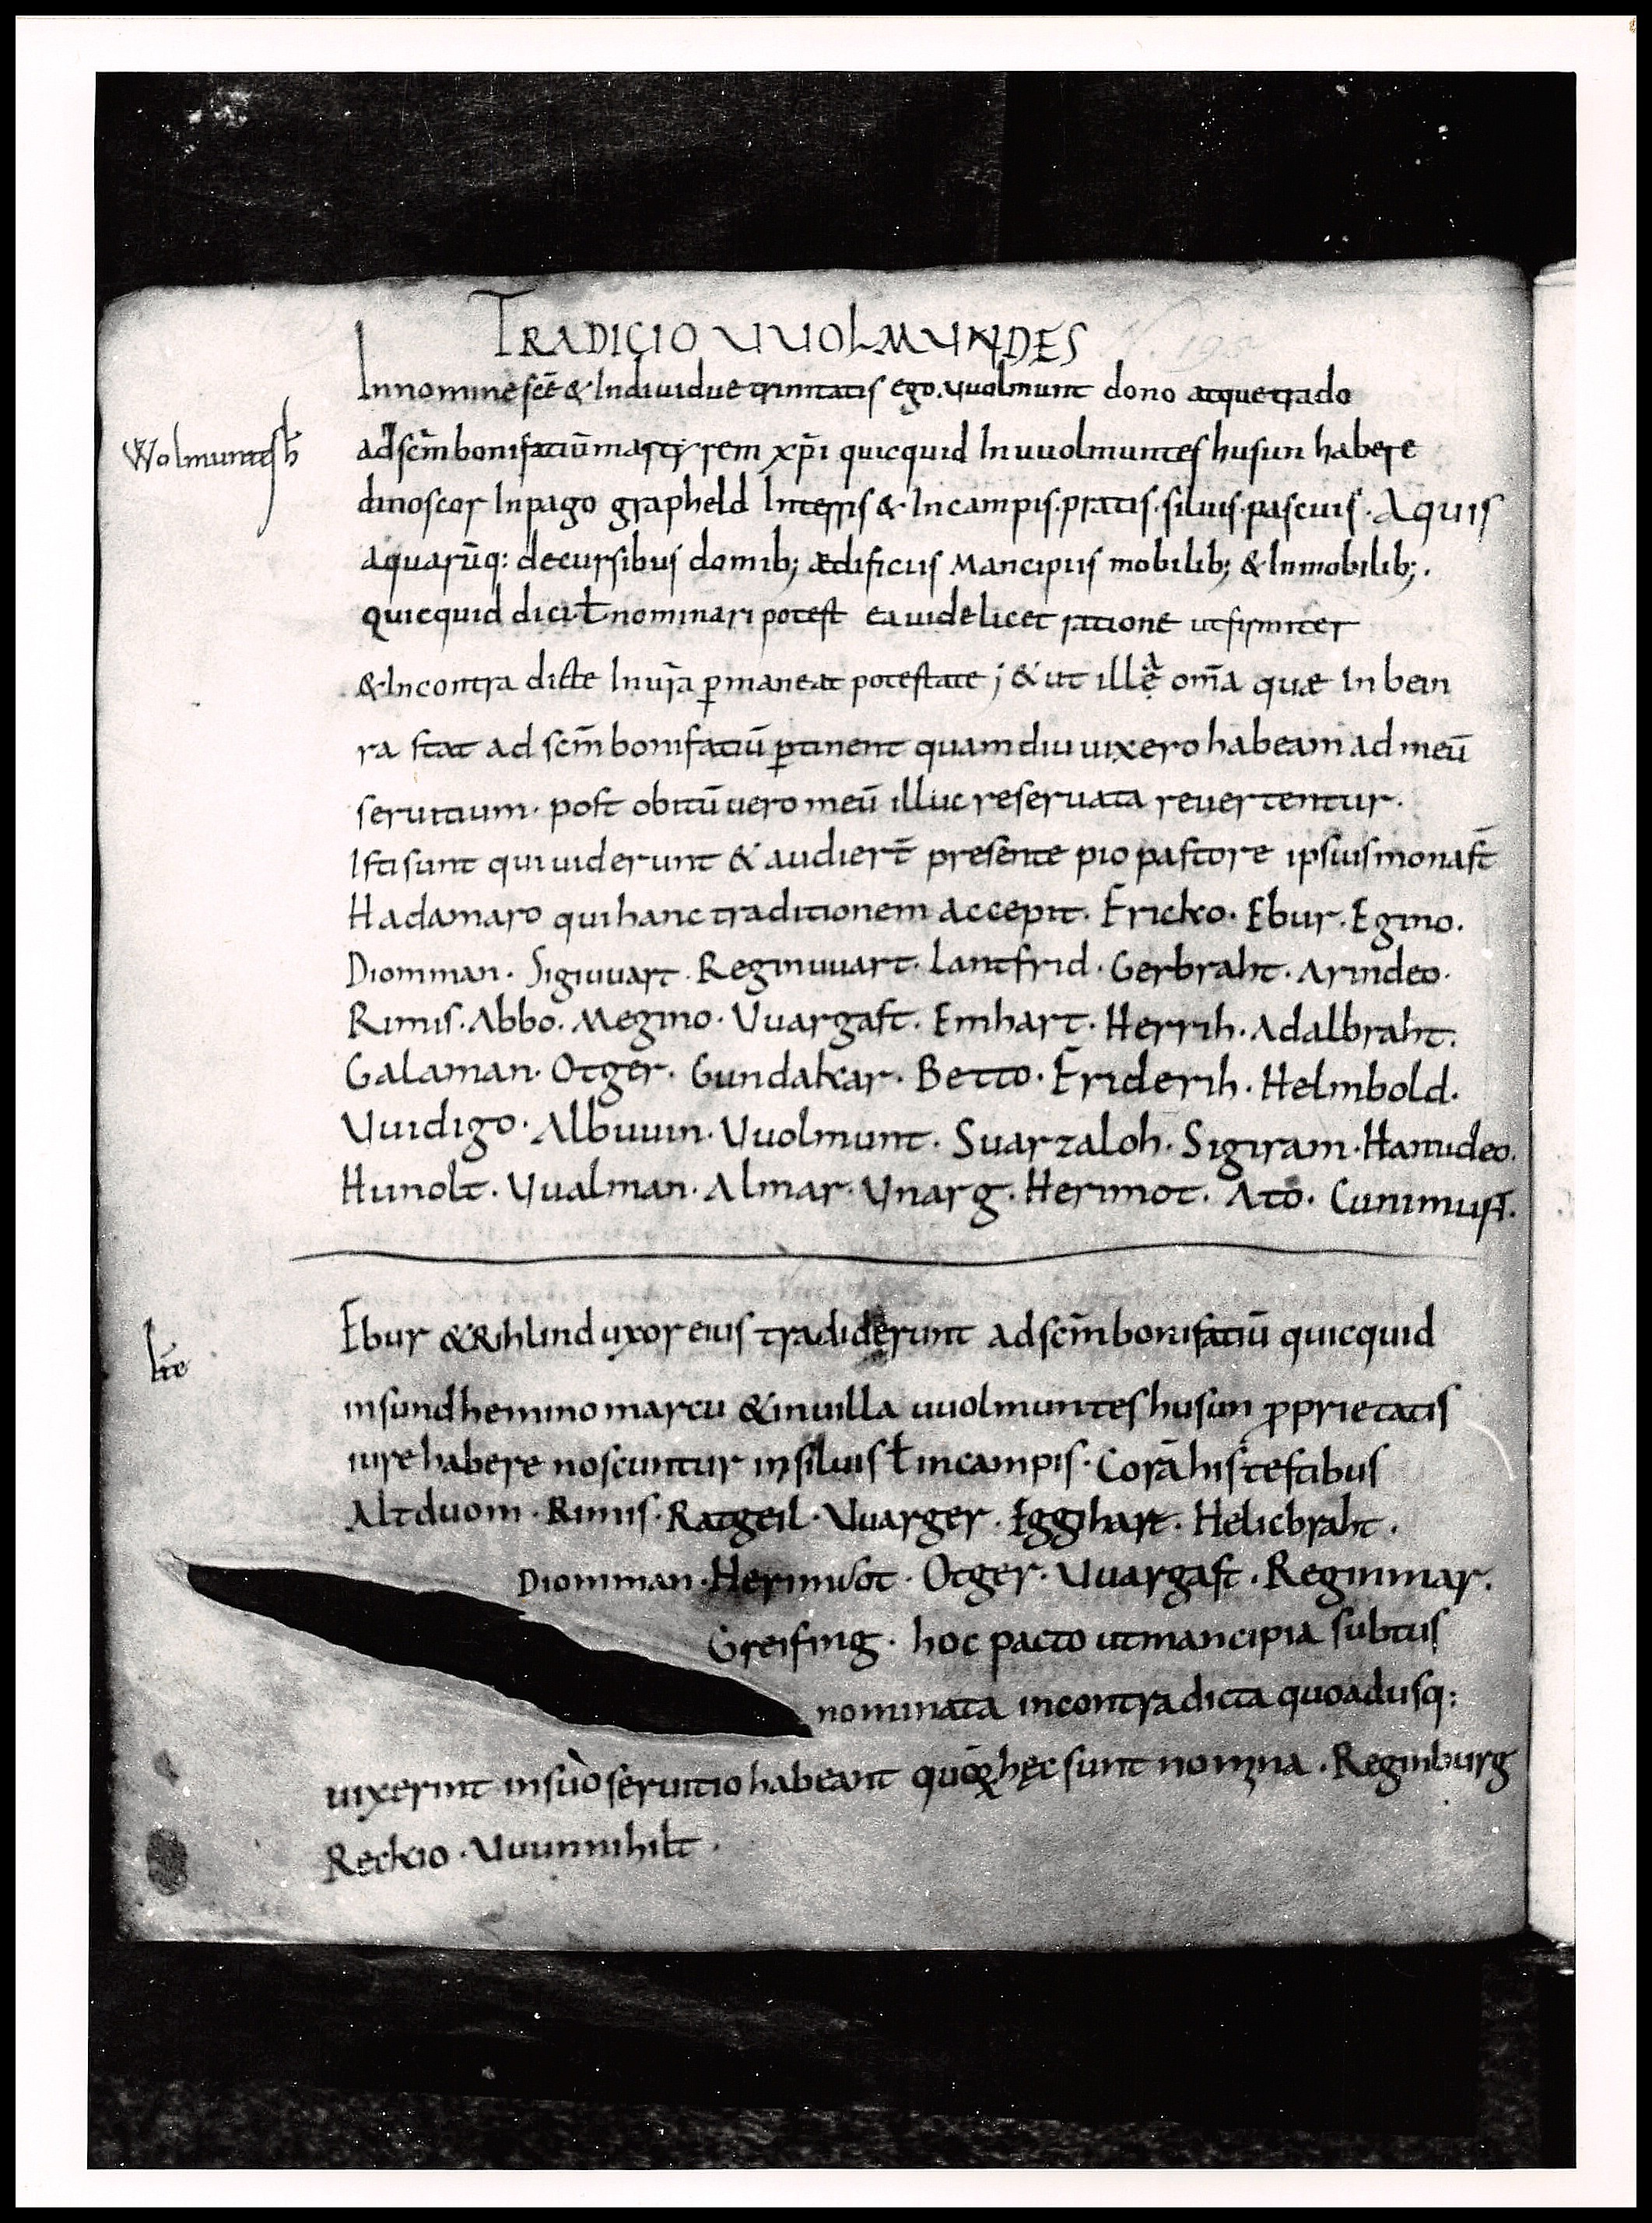 TRADICIO UUOLMUNDES
In nomine scē & Individue trinitatis ego. vuolmunt dono atque trado
Wolmuntesh̄
ad scm̄ bonifatiū martyrem xp̄i quicquid In uuolmuntes husun habere
dinoscor In pago grapheld In terris & In campis. pratis. siluis. pascuis. Aquis
aquarūq: decursibus domib; ædificiis Mancipiis mobilib; & Inmobilib;.
quicquid dici ł nominari potest ea uidelicet ratione ut firmiter
& Incontra dicte In urā p̱maneat potestate; & ut illę om̄a quæ In bein
ra stat ad scm̄ bonifatiū p̱tinent quam diu uixero habeam ad meū
seruitium. post obitū uero meū illuc reseruata reuertentur.
Isti sunt qui uiderunt & audiert̄ presente pio pastore ipsius monast̄
Hadamaro qui hanc traditionem accepit. Fricko. Ebur. Egino.
Diomman. Sigiuuart. Reginuuart. Lantfrid. Gerbraht. Arindeo.
Rimis. Abbo. Megino. Vuargast. Einhart. Herrih. Adalbraht.
Galaman. Otger. Gundakar. Betto. Friderih. Helmbold.
Vuidigo. Albuuin. Vuolmunt. Suarzaloh. Sigiram. Hamideo.
Hunolt. Vualman. Almar. Vnarg. Herimot. Ato. Cunimust.
Ebur & Rihlind uxor eius tradiderunt ad scm̄ bonifatiū quicquid
Itē
in sundheimino marcu & in uilla uuolmuntes husun ꝓprietatis
iure habere noscuntur in siluis ł in campis. Corā his testibus
Altduom. Rimis. Ratgeil. Vuarger. Egghart. Helicbraht.
Diomman. Herimuot. Otger. Vuargast. Reginmar.
Greifing. hoc pacto ut mancipia subtus
nominata incontradicta quoadusq:
uixerint in suo seruitio habeant quoꝝ hęc sunt nomina. Reginburg
Reckio. Vuunnihilt.